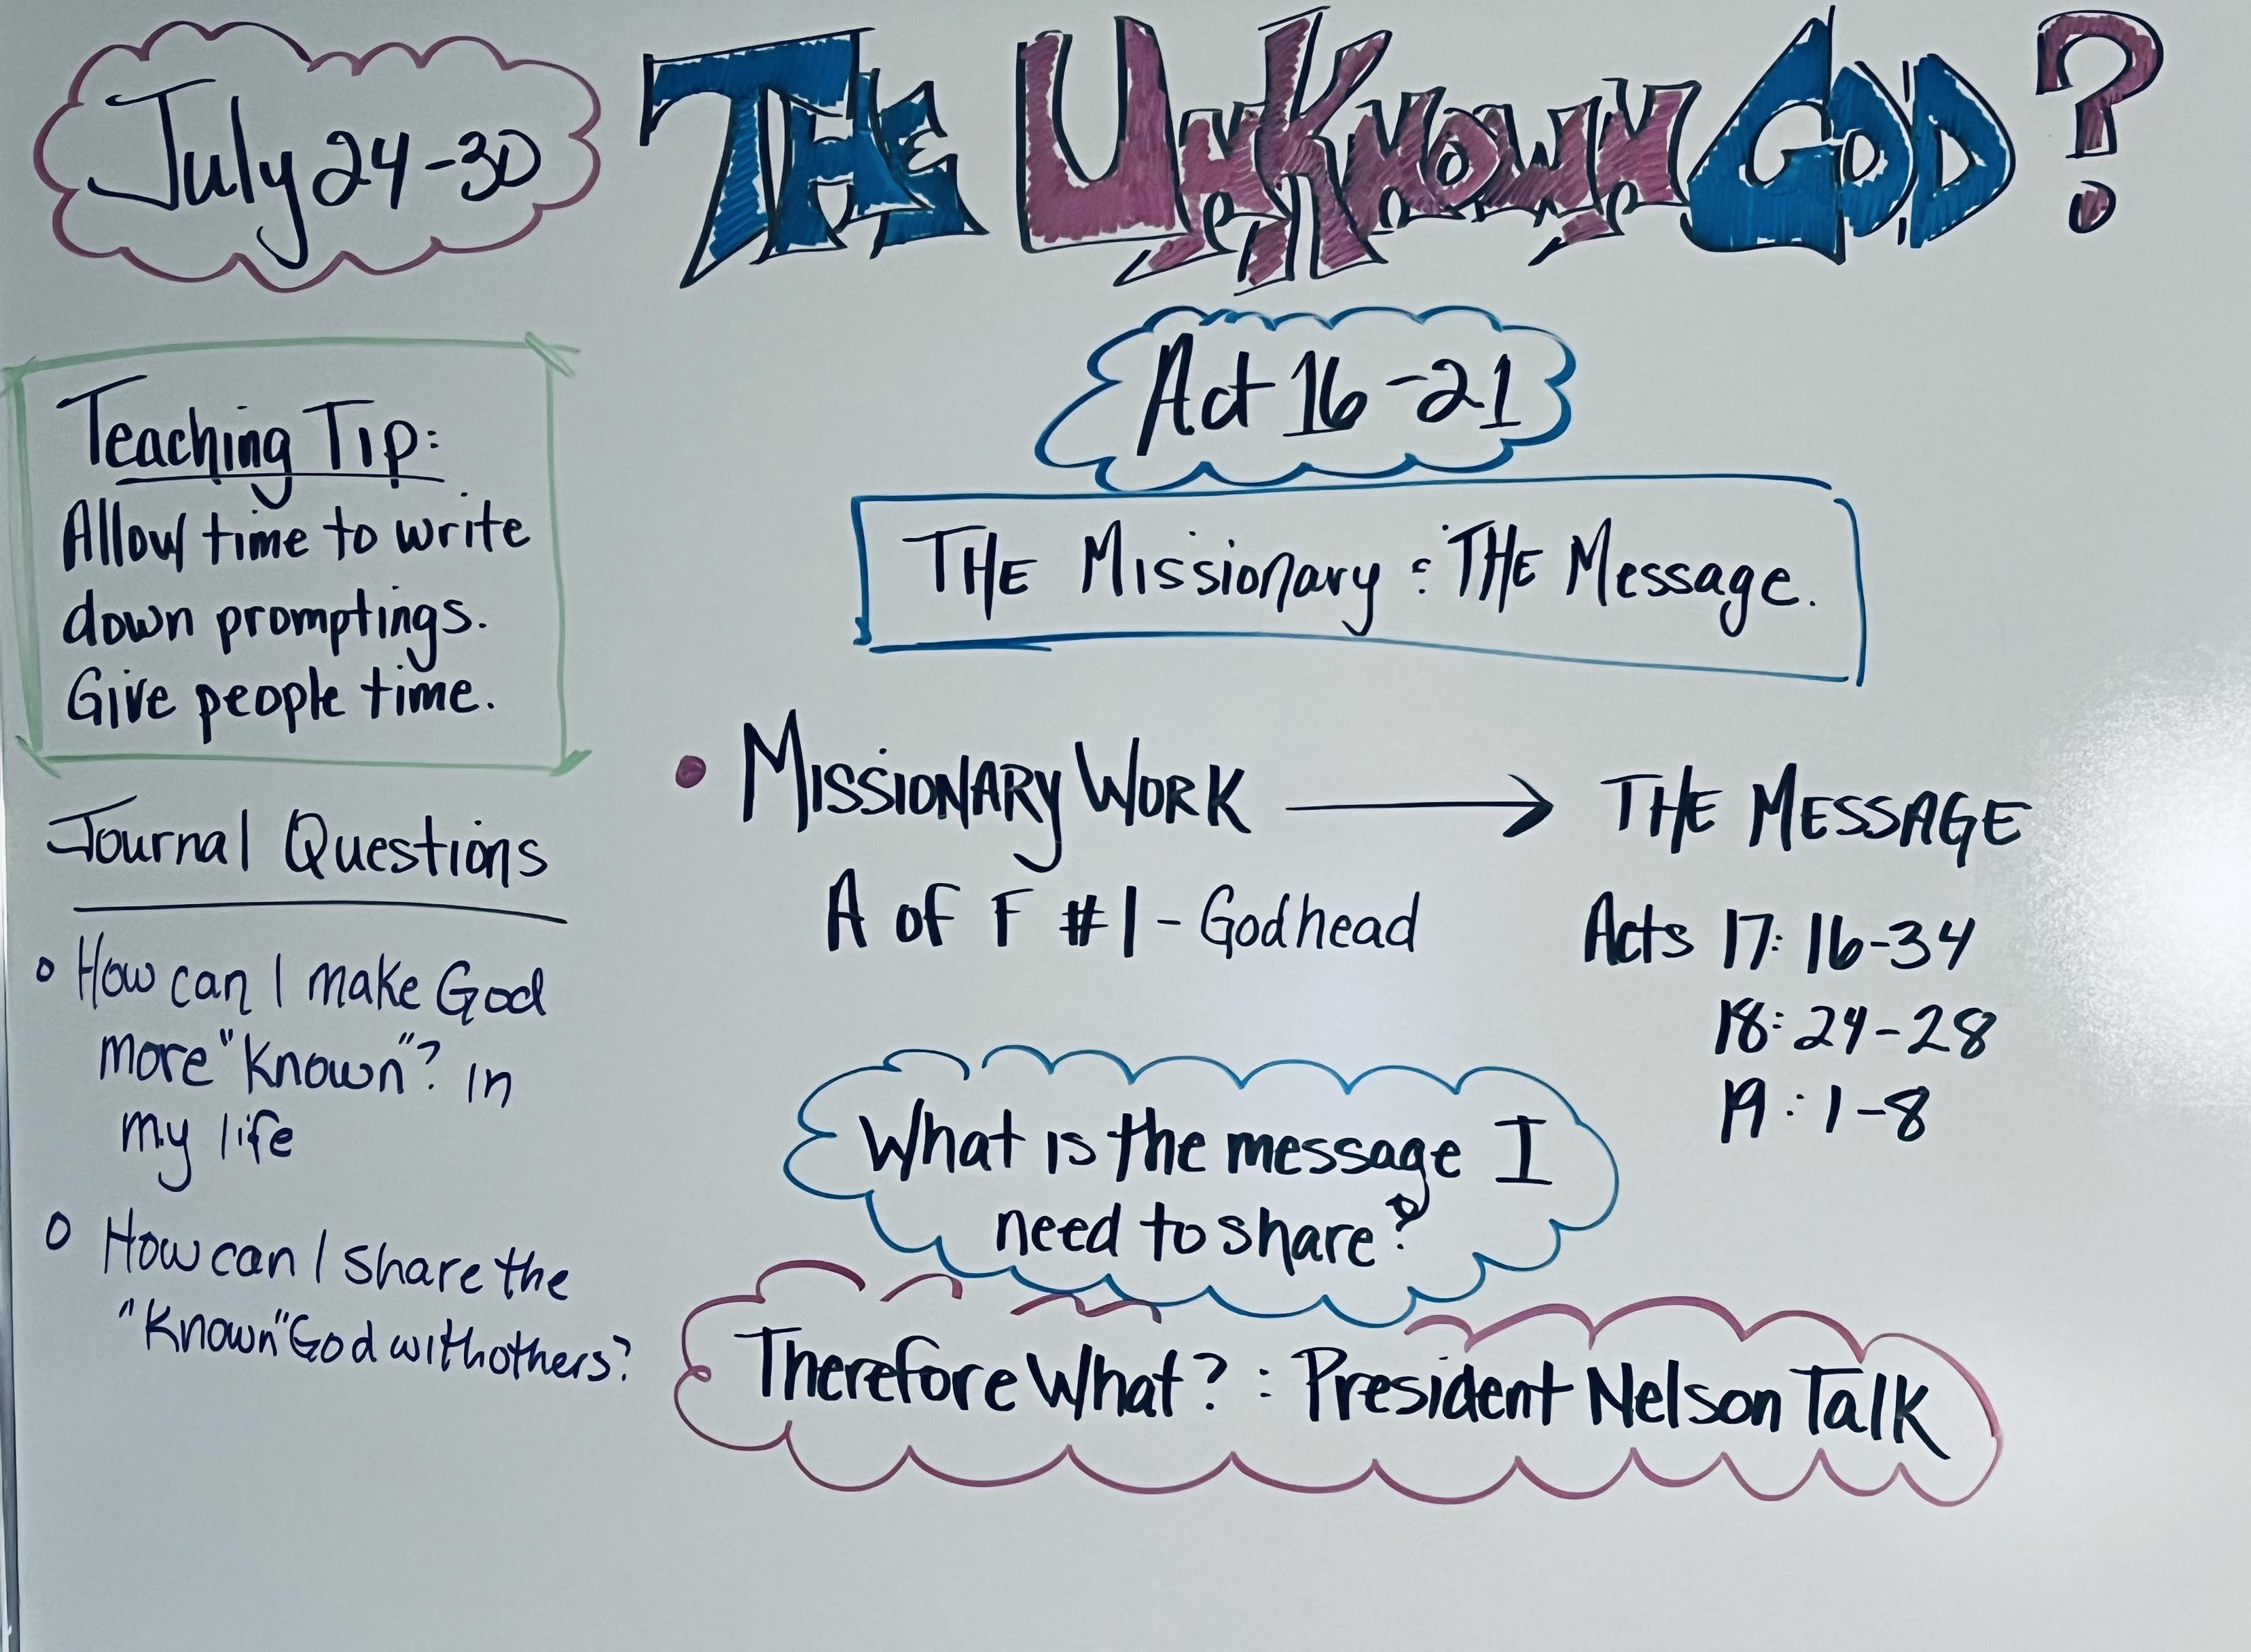 July 24-30
THE UnKnown GOD?
Act 16-21
THE Missionary : THE Message.
Teaching Tip:
Allow time to write
down promptings.
Give people time.
Journal Questions
How can I make God
more "Known"? in
my life
How can I share the
"Known" God with others?
• MISSIONARY WORK → THE MESSAGE
A of F #1 - Godhead
Acts 17: 16-34
18: 24-28
19: 1-8
What is the message I
need to share?
Therefore What? : President Nelson Talk